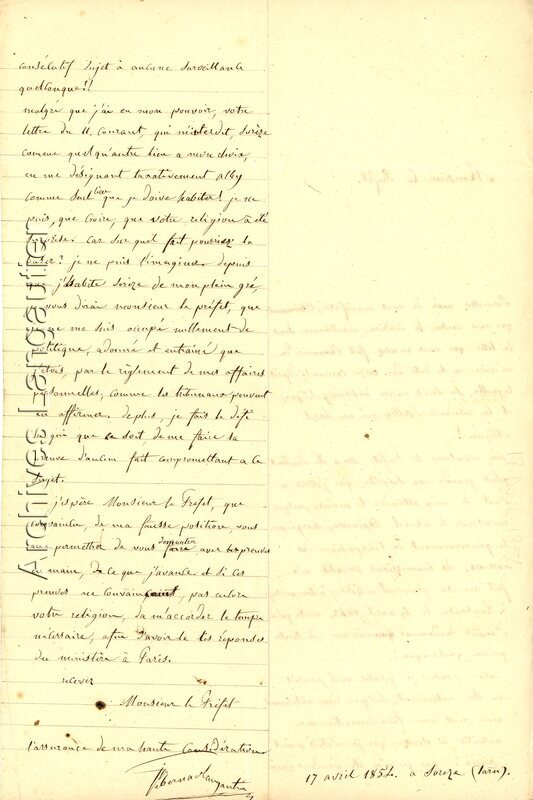 consécutif sujet à aucune surveillance
quelconque!!
malgré que j'ai en mon pouvoir, votre
lettre du 11. courant, qui m'interdit, Sorèze
comme quelqu'autre lieu a notre choix,
en me désignant taxativement alby
comme seul lieu que je doive habiter! je ne
puis, que croire, que votre religion a été
surprise. car sur quel fait pourriez la
baser? je ne puis l'imaginer. depuis
que j'habite Sorèze de mon plein gré,
vous dirai monsieur le préfet, que
je ne me suis occupé nullement de
politique, adonné et entrainé que
j'etois, par le réglement de mes affaires
personnelles, comme les tribunaux peuvent
en affirmer. deplus, je fais le défi
à qui que ce soit de me faire la
preuve d'aucun fait compromettant a ce
sujet.
j'espère Monsieur le Préfet, que
convaincu, de ma fausse position, vous
me permettrez de vous demontrer avec les preuves
en main, de ce que j'avance et si ces
preuves ne convainquent, pas encore
votre religion, de m'accorder le temps
nécessaire, afin d'avoir les réponses
du ministère à Paris.
recevez
Monsieur le Préfet
l'assurance de ma haute considération
17 avril 1854. a Soreze (tarn).
Archives | departementales